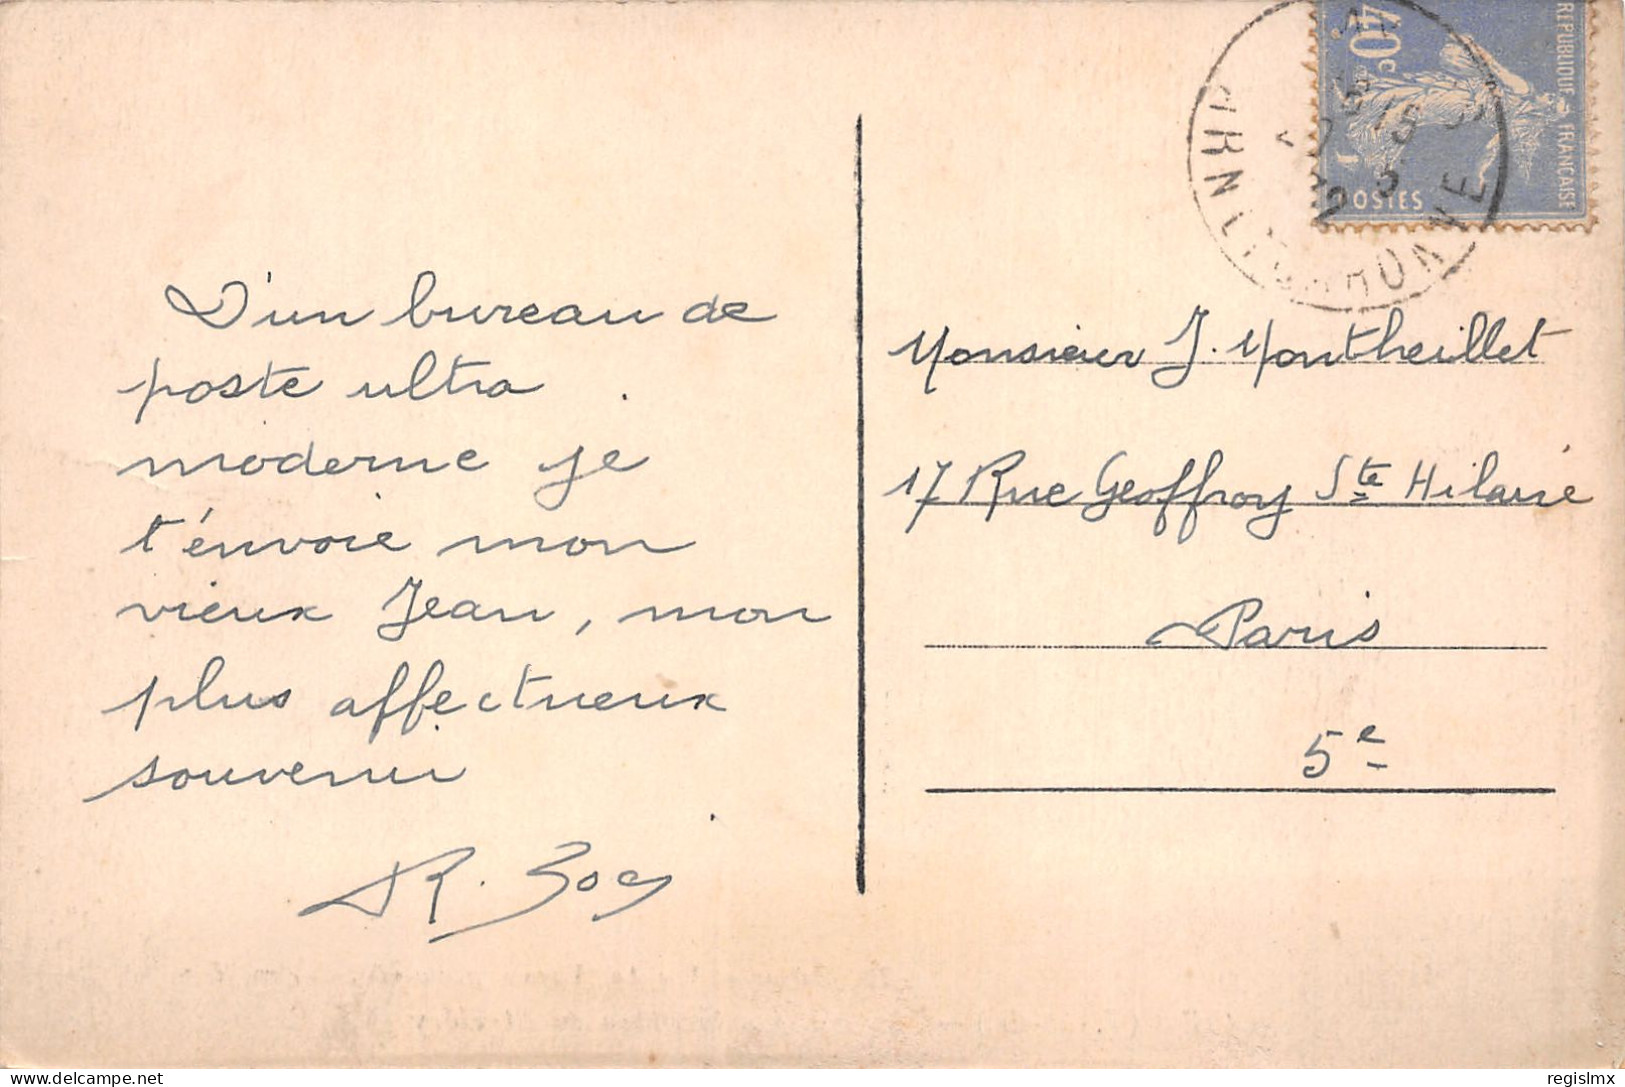 D'un bureau de
poste ultra
moderne je
t'envoie mon
vieux Jean, mon
plus affectueux
souvenir
40c
REPUBLIQUE FRANCAISE
POSTES
Monsieur J. Montheillet
17 Rue Geoffroy Ste Hilaire
Paris
5e
regislmx